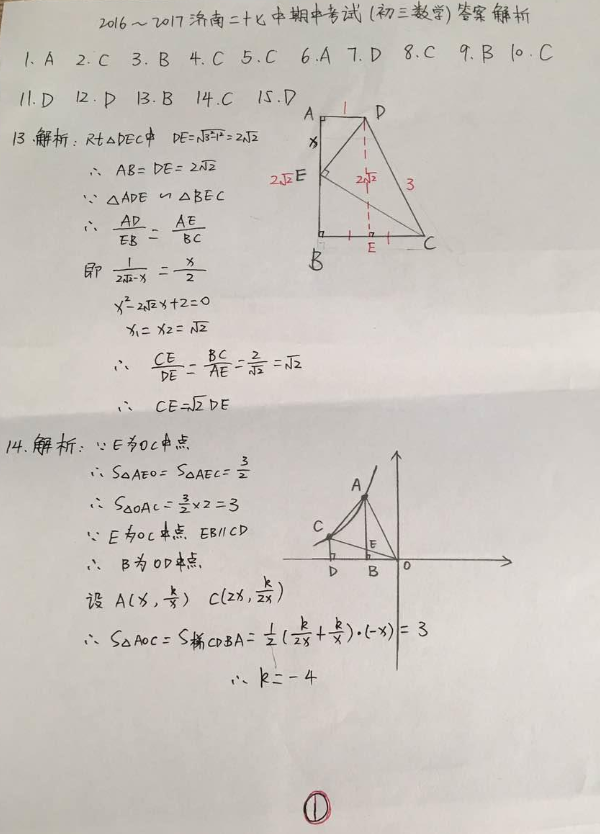 2016～2017济南二十七中期中考试(初三数学)答案解析
1. A 2. C 3. B 4. C 5. C 6. A 7. D 8. C 9. B 10. C
11. D 12. D 13. B 14. C 15. D
13.解析: Rt△DEC中 DE=√3²-1²=2√2
∴ AB=DE=2√2
∵ △ADE ∽ △BEC
∴ AD/EB = AE/BC
即 1/(2√2-x) = x/2
x²-2√2x+2=0
x₁=x₂=√2
∴ CE/DE = BC/AE = 2/√2 = √2
∴ CE=√2DE
A 1 D
x
2√2 E 2√2 3
B 1 E 1 C
14.解析: ∵E为OC中点
∴ S△AEO=S△AEC=3/2
∴ S△OAC=3/2×2=3
∵ E为OC中点 EB∥CD
∴ B为OD中点
设 A(x, k/x) C(2x, k/2x)
∴ S△AOC=S梯CDBA=1/2(k/2x+k/x)·(-x)=3
∴ k=-4
A
C
E
D B O
①